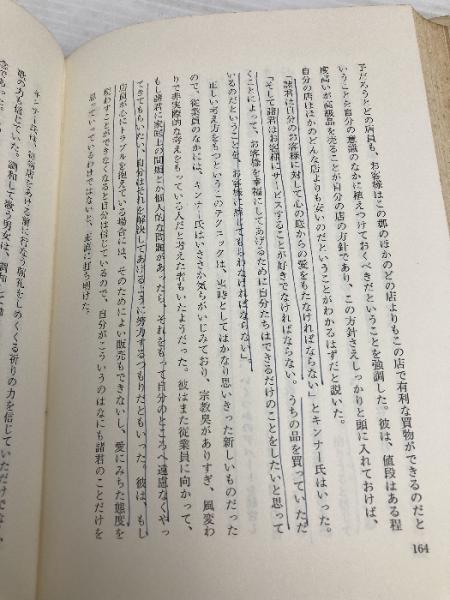 予だろうとどの店員も、お客様はこの郡のほかのどの店よりもこの店で有利な買物ができるのだと
いうことを自分の意識のなかに植えつけておくべきだということを強調した。彼は、値段はある程
度高いが高級品を売ることが自分の店の方針であり、この方針さえしっかりと頭に入れておけば、
自分の店はほかのどんな店よりも安いのだということがわかるはずだと説いた。
「諸君は自分のお客様に対して心の底からの愛をもたなければならない」とキンナー氏はいった。
「そして諸君はお客様にサービスすることが好きでなければならない。うちの品を買っていただ
くことによって、お客様を幸福にしてあげるために自分たちはできるだけのことをしたいと思って
いるのだということを、お客様に感じてもらわなければならない」
正しい考え方をもつというこのテクニックは、実務としてはかなり思いきった新しいものだった
ので、従業員のなかには、キンナー氏はいささか気ちがいじみており、宗教臭がありすぎ、風変わ
りで非実際的な考えをもっている人だと考えた者もいたようだった。彼はまた従業員に向かって、
もし諸君に家庭上の問題とか個人的な問題があったら、それをもって自分のところへ遠慮なくやっ
てきてもらいたい、自分はそれを解決してあげるように努力するつもりだともいった。彼は、もし
店員が心にトラブルを抱えている場合には、そのためによい販売もできないし、愛にみちた態度を
現わすことができなくなると自分は信じているので、自分がこういうのはなにも諸君のことだけを
思っていっているわけではないと、率直に打ち明けた。
キンナー氏は、
祈りの力を信じていただけでなく、
歌の力も信じていた。調和して歌う男女は、調和して働
164